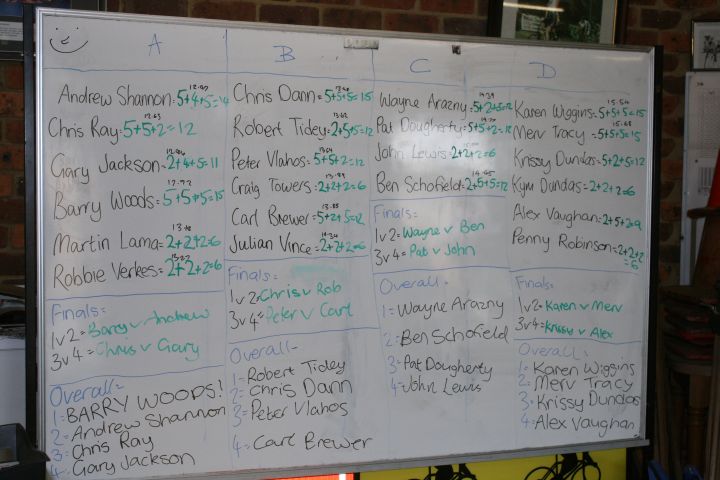 A
Andrew Shannon=5+4+5=14
Chris Ray=5+5+2=12
Gary Jackson=2+4+5=11
Barry Woods=5+5+5=15
Martin Lama=2+2+2=6
Robbie Verkes=2+2+2=6
Finals=
1v2=Barry v Andrew
3v4=Chris v Gary
Overall=
1=BARRY WOODS!
2=Andrew Shannon
3=Chris Ray
4=Gary Jackson
B
Chris Dann=5+5+5=15
Robert Tidey=2+5+5=12
Peter Vlahos=5+5+2=12
Craig Towers=2+2+2=6
Carl Brewer=5+2+5=12
Julian Vince=2+2+2=6
Finals=
1v2=Chris v Rob
3v4=Peter v Carl
Overall=
1=Robert Tidey
2=Chris Dann
3=Peter Vlahos
4=Carl Brewer
C
Wayne Arazny=5+2+5=12
Pat Dougherty=5+5+2=12
John Lewis=2+2+2=6
Ben Schofield=2+5+5=12
Finals=
1v2=Wayne v Ben
3v4=Pat v John
Overall=
1=Wayne Arazny
2=Ben Schofield
3=Pat Dougherty
4=John Lewis
D
Karen Wiggins=5+5+5=15
Merv Tracy=5+5+5=15
Krissy Dundas=5+2+5=12
Kym Dundas=2+2+2=6
Alex Vaughan=2+5+2=9
Penny Robinson=2+2+2
=6
Finals=
1v2=Karen v Merv
3v4=Krissy v Alex
Overall=
1=Karen Wiggins
2=Merv Tracy
3=Krissy Dundas
4=Alex Vaughan